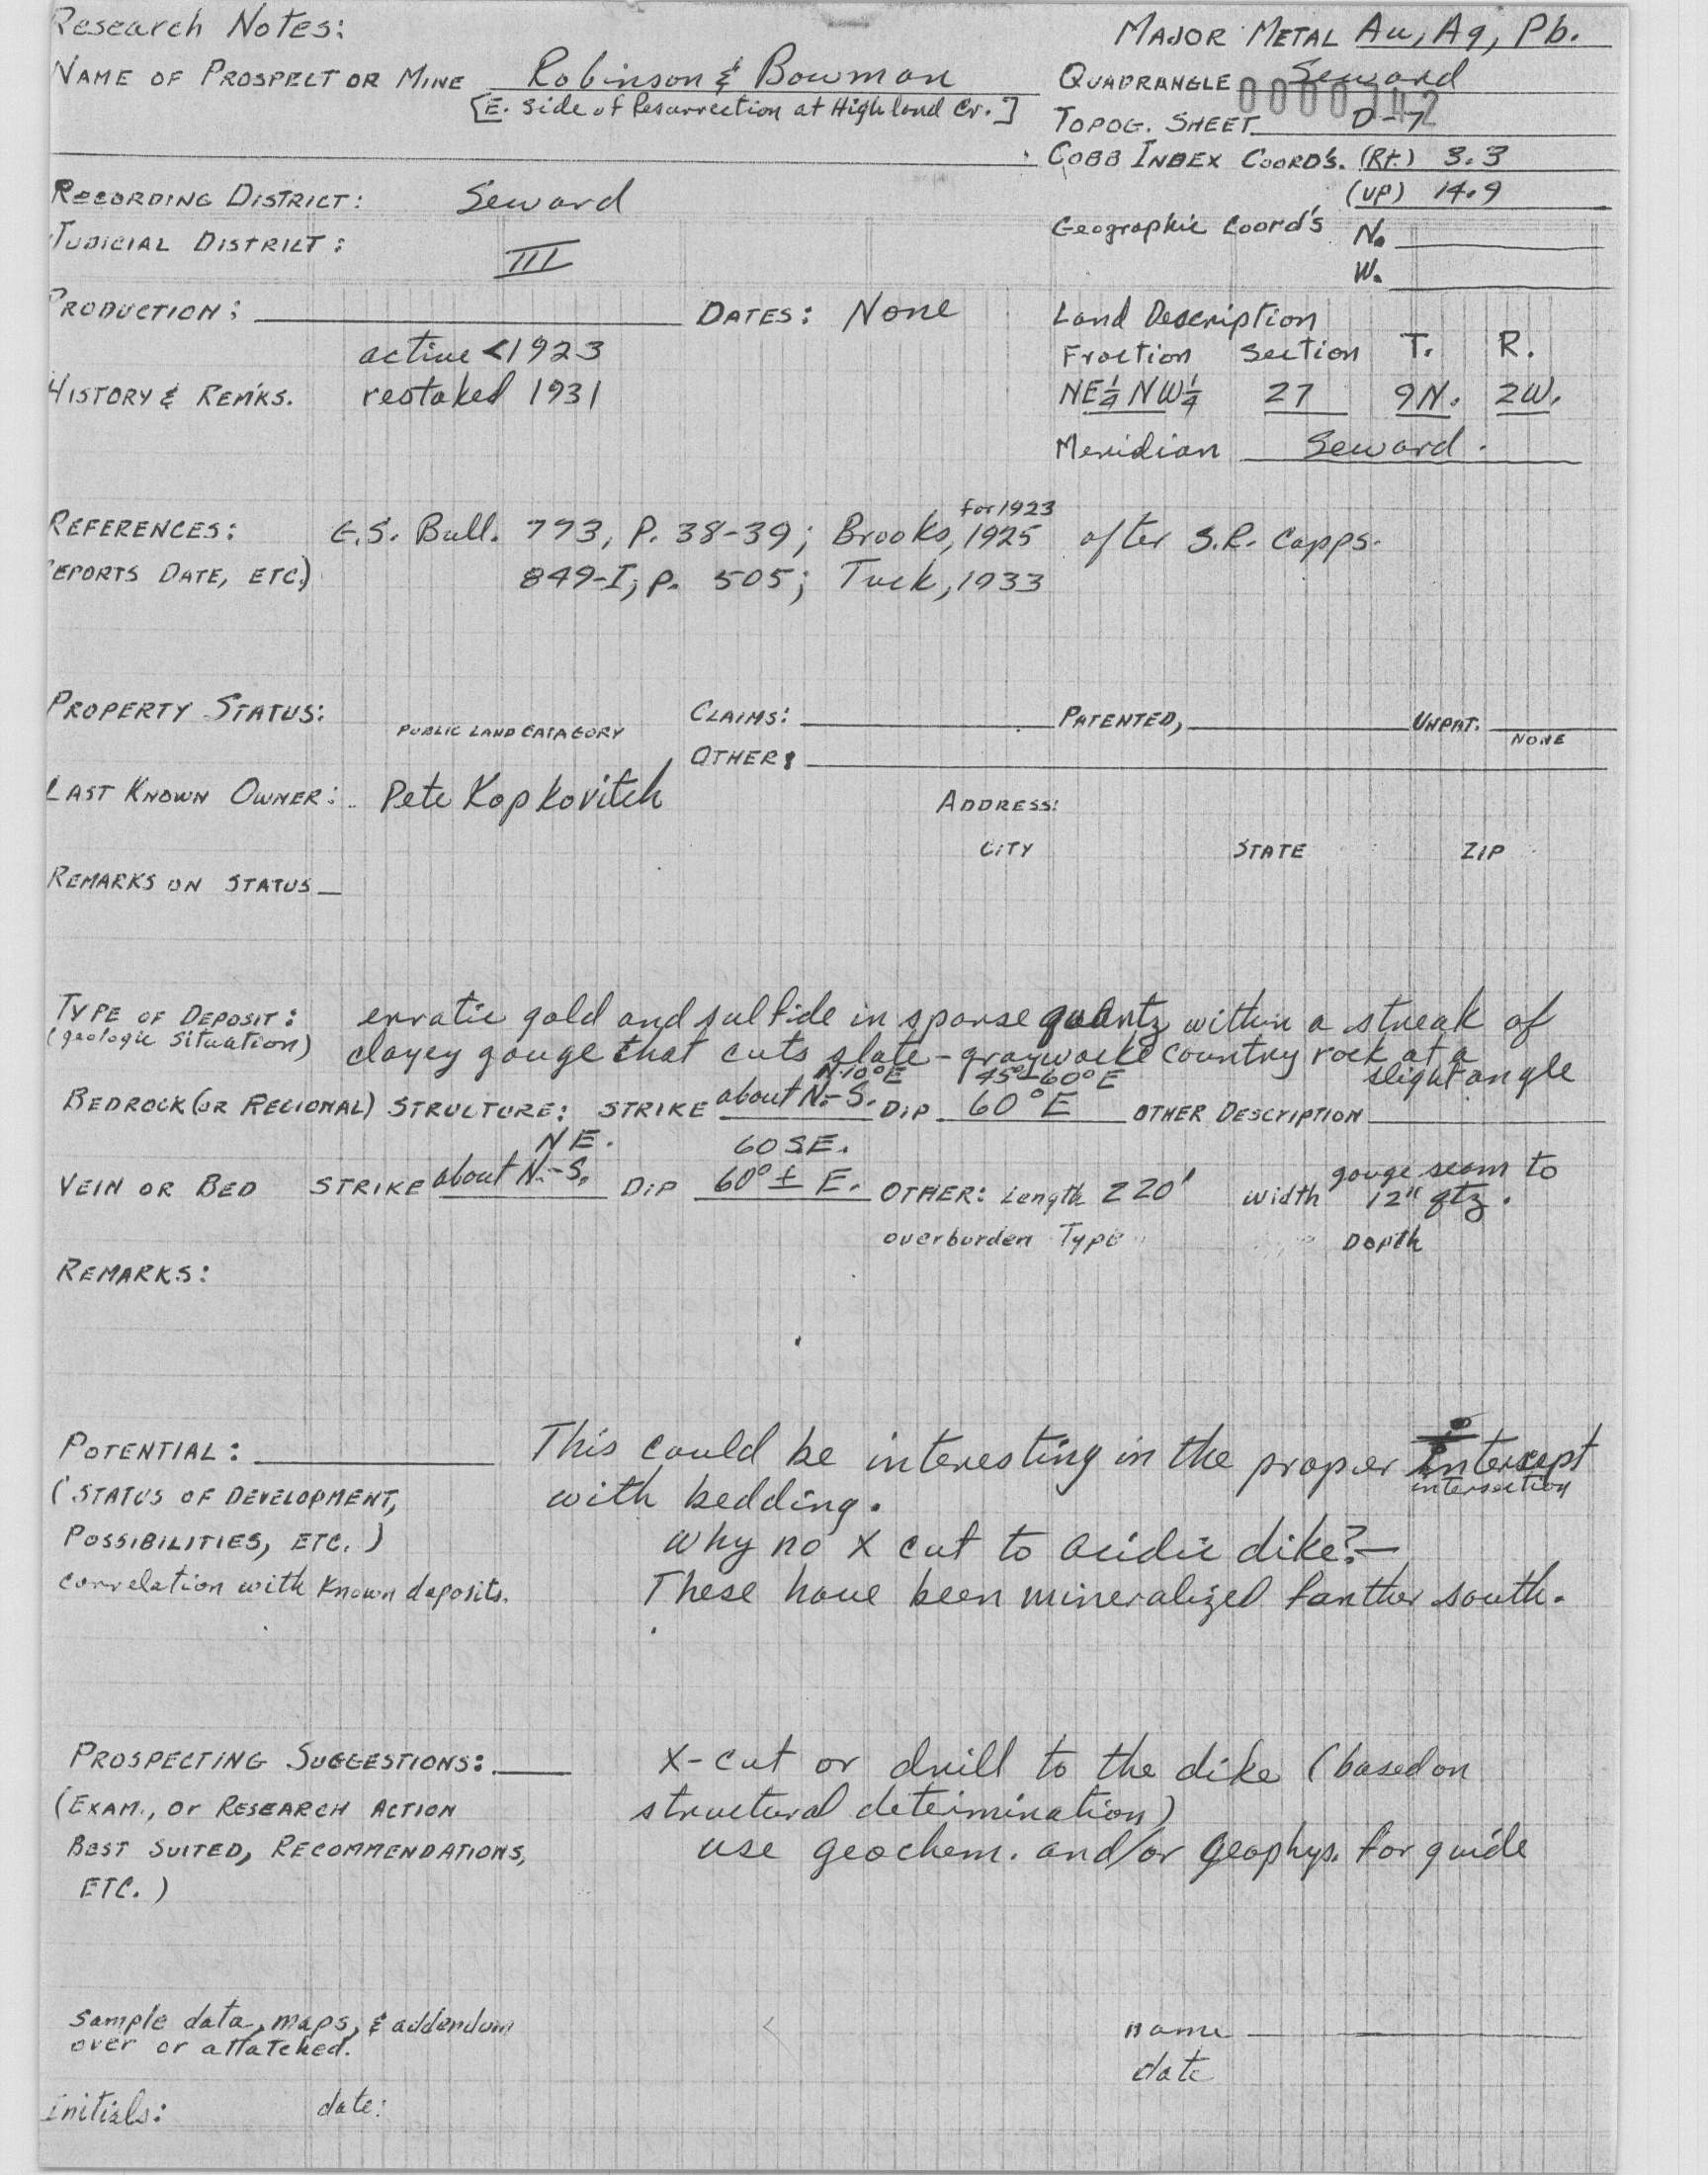 Research Notes:
MAJOR METAL Au, Ag, Pb.
NAME OF PROSPECT OR MINE Robinson & Bowman
[E. side of Resurrection at Highland Cr.]
QUADRANGLE Seward
TOPOG. SHEET D-7
COBB INDEX COORD'S. (Rt.) 3.3
(UP) 14.9
RECORDING DISTRICT: Seward
Geographic Coord's N.
W.
JUDICIAL DISTRICT: III
PRODUCTION: DATES: None
Land Description
Fraction Section T. R.
NE¼ NW¼ 27 9N. 2W.
Meridian Seward.
active <1923
HISTORY & REMKS. restaked 1931
REFERENCES: G.S. Bull. 793, P. 38-39; Brooks, for 1923 1925 after S.R. Capps.
REPORTS DATE, ETC.) 849-I, p. 505; Tuck, 1933
PROPERTY STATUS: PUBLIC LAND CATAGORY CLAIMS: PATENTED, UNPAT. NONE
OTHER:
LAST KNOWN OWNER: Pete Kopkovitch ADDRESS:
CITY STATE ZIP
REMARKS ON STATUS
TYPE OF DEPOSIT: erratic gold and sulfide in sparse quartz within a streak of
(geologic situation) clayey gouge that cuts slate-graywacke country rock at a
slight angle
N10°E 45°-60°E
BEDROCK (OR REGIONAL) STRUCTURE: STRIKE about N.-S. DIP 60°E OTHER DESCRIPTION
NE. 60 SE.
VEIN OR BED STRIKE about N.-S. DIP 60° ± E. OTHER: Length 220' width gouge seam to
12" qtz.
overburden Type Depth
REMARKS:
POTENTIAL: This could be interesting in the proper intercept
intersection
(STATUS OF DEVELOPMENT, with bedding.
POSSIBILITIES, ETC.) Why no X cut to acidic dike?—
correlation with known deposits. These have been mineralized farther south.
PROSPECTING SUGGESTIONS: X-cut or drill to the dike (based on
(EXAM., or RESEARCH ACTION structural determination)
BEST SUITED, RECOMMENDATIONS, use geochem. and/or geophys. for guide
ETC.)
sample data, maps, & addendum
over or attatched.
name
date
Initials: date: